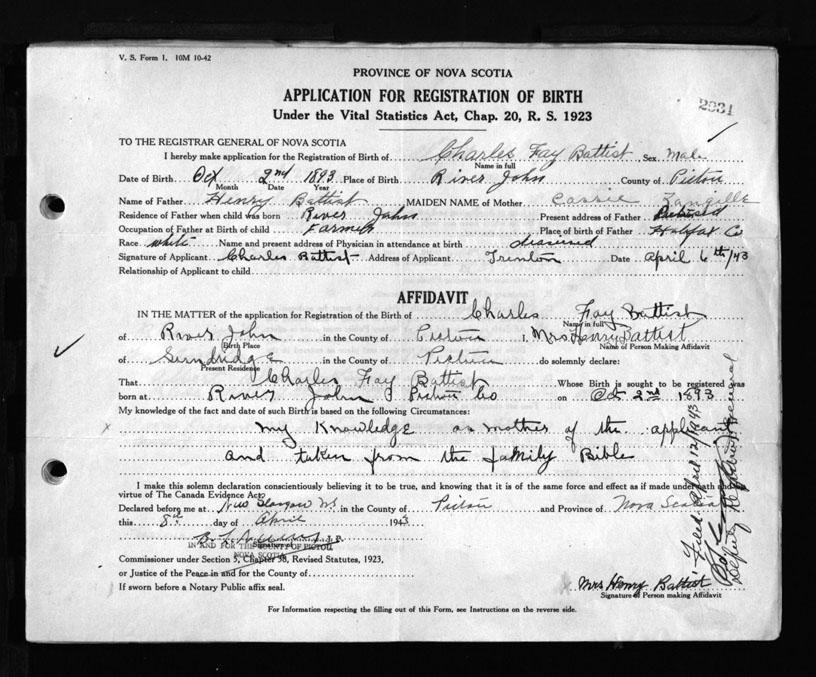 V. S. Form 1. 10M 10-42
PROVINCE OF NOVA SCOTIA
APPLICATION FOR REGISTRATION OF BIRTH
2931
Under the Vital Statistics Act, Chap. 20, R. S. 1923
TO THE REGISTRAR GENERAL OF NOVA SCOTIA
I hereby make application for the Registration of Birth of Charles Fay Battist Sex Male
Name in full
Date of Birth Oct 2nd 1893 Place of Birth River John County of Pictou
Month Date Year
Name of Father Henry Battist MAIDEN NAME of Mother Cassie
Residence of Father when child was born River John Present address of Father
Occupation of Father at Birth of child Farmer Place of birth of Father Halifax Co
Race white Name and present address of Physician in attendance at birth deceased
Signature of Applicant Charles Battist Address of Applicant Trenton Date April 6th/43
Relationship of Applicant to child
AFFIDAVIT
IN THE MATTER of the application for Registration of the Birth of Charles Fay Battist
Name in full
of River John in the County of Pictou I, Mrs Henry Battist
Birth Place Name of Person Making Affidavit
of in the County of Pictou do solemnly declare:
Present Residence
That Charles Fay Battist Whose Birth is sought to be registered was
born at River John Pictou Co on Oct 2nd 1893
My knowledge of the fact and date of such Birth is based on the following Circumstances:
my Knowledge as mother of the applicant
and taken from the family Bible
I make this solemn declaration conscientiously believing it to be true, and knowing that it is of the same force and effect as if made under oath and by
virtue of The Canada Evidence Act.
Declared before me at New Glasgow N.S. in the County of Pictou and Province of Nova Scotia
this 8th day of April 1943
J. P.
IN AND FOR THE COUNTY OF PICTOU
NOVA SCOTIA
Commissioner under Section 5, Chapter 38, Revised Statutes, 1923,
or Justice of the Peace in and for the County of
If sworn before a Notary Public affix seal.
Mrs Henry Battist
Signature of Person making Affidavit
For Information respecting the filling out of this Form, see Instructions on the reverse side.
Filed April 12/1943
Deputy Registrar General